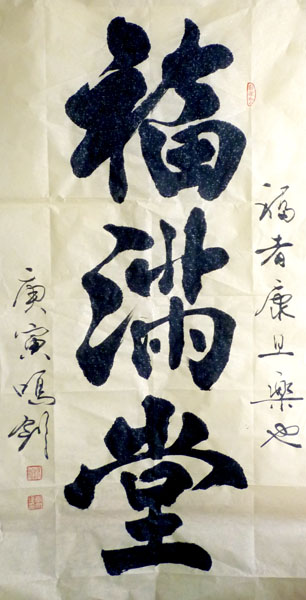 福者康且樂也
福滿堂
庚寅鳴劍